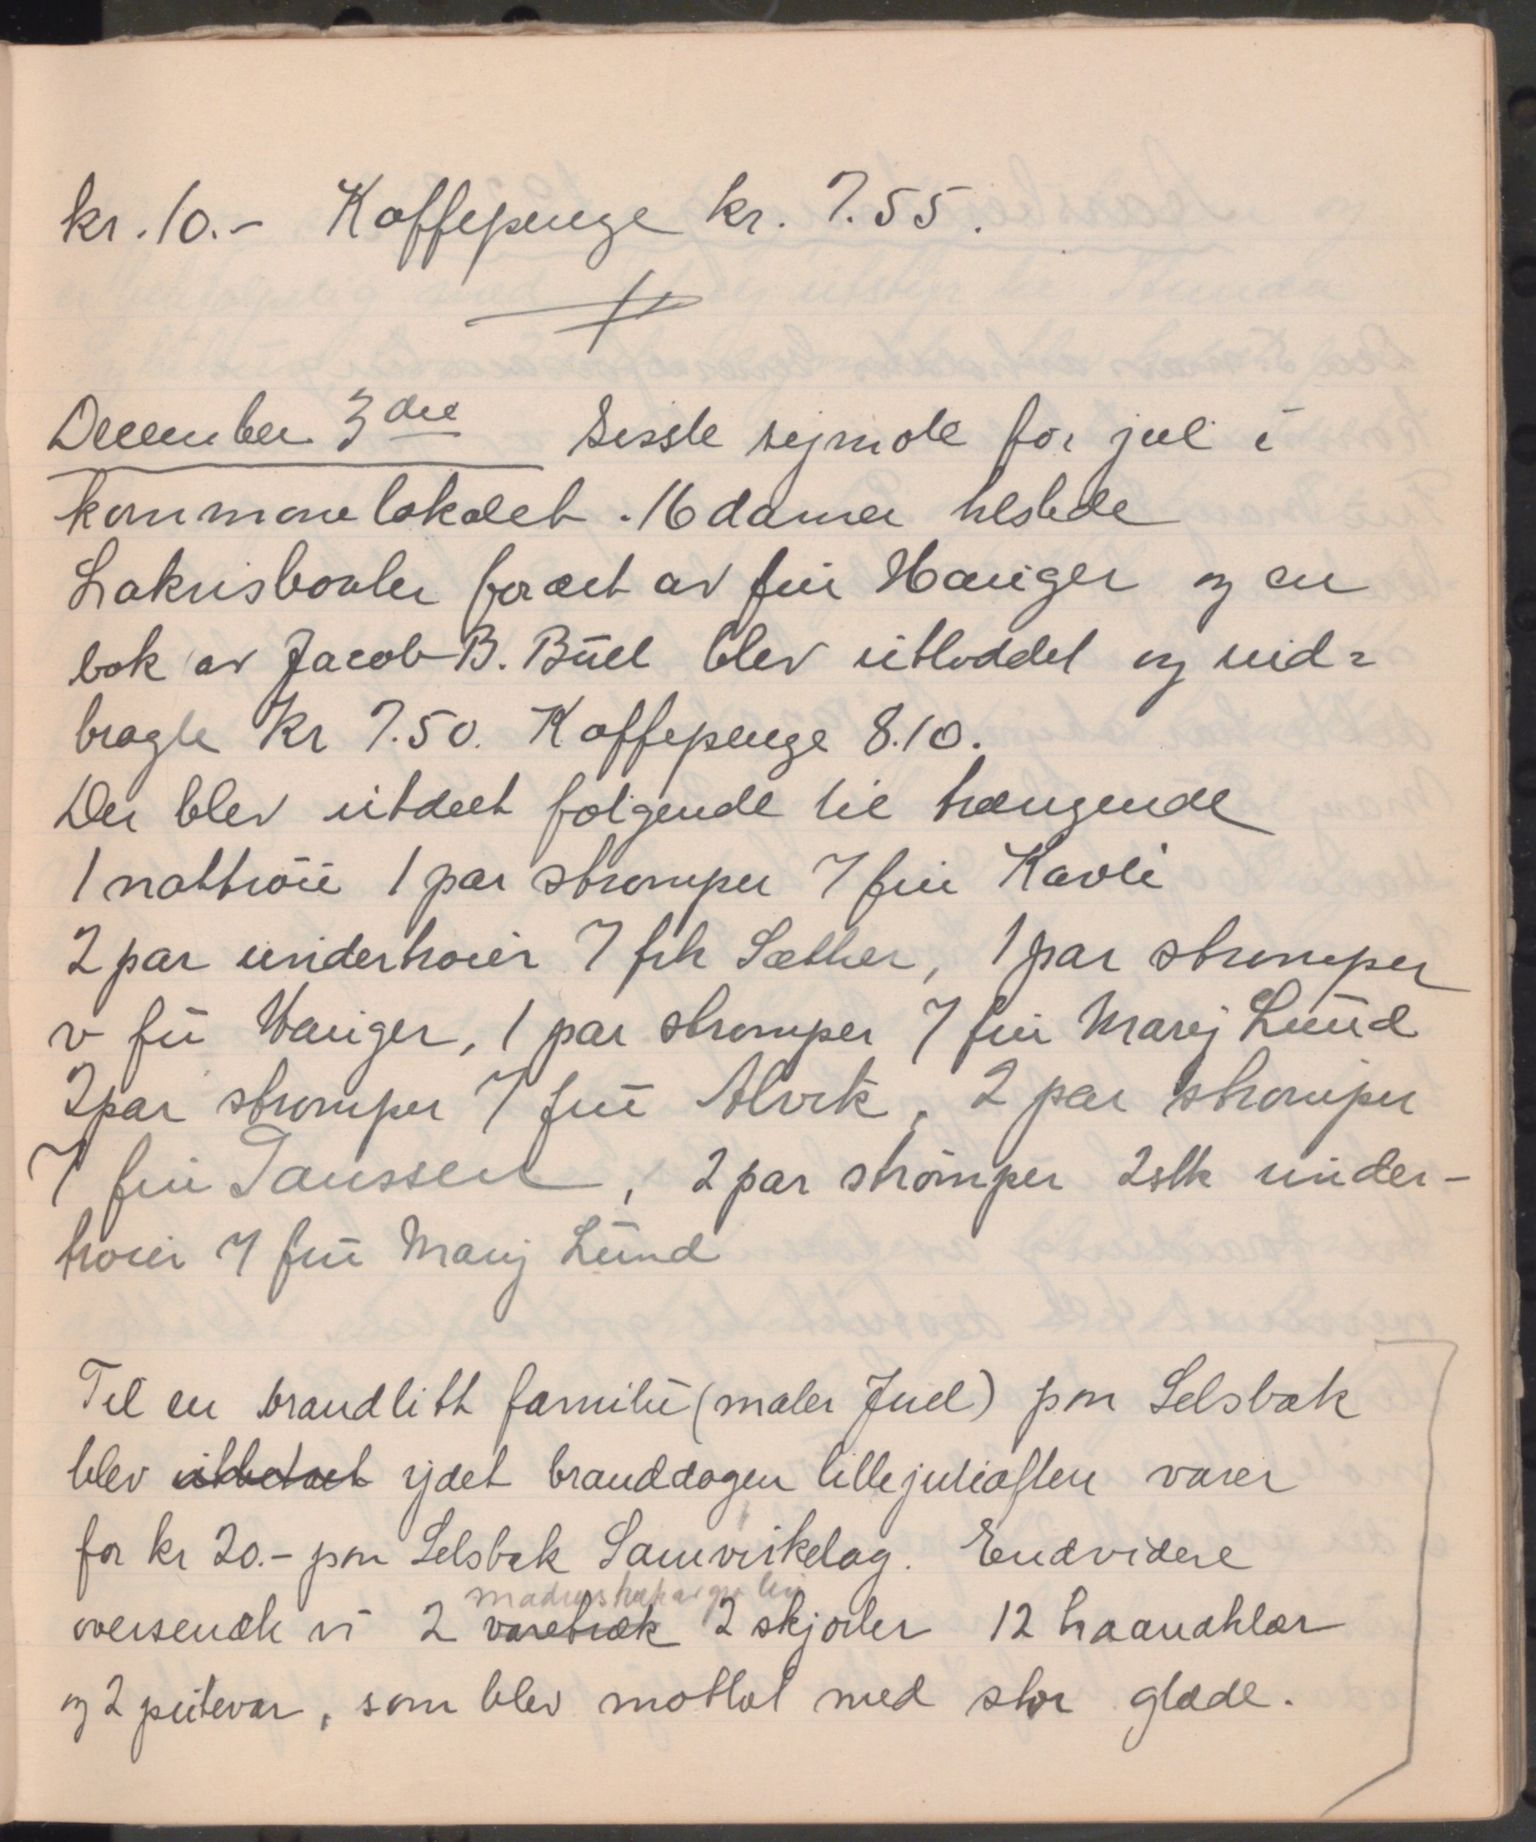 kr. 10.- Kaffepenge kr. 7.55.
December 3die Sisste symøte før jul i
kommunelokalet. 16 damer tilstede
Lakrisboater foræret av fru Hauger og en
bok av Jacob B. Bull blev utloddet og ind=
bragte kr 7.50. Kaffepenge 8.10.
Der blev utdelt følgende til trængende
1 nattrøie 1 par strømper 7 fru Kavli
2 par undertrøier 7 frk Sæther, 1 par strømper
v fru Hauger, 1 par strømper 7 fru Marij Lund
2 par strømper 7 fru Alvik, 2 par strømper
7 fru Janssen, 2 par strømper 2 stk under-
trøier 7 fru Marij Lund
Til en brandlitt familie (maler Juel) paa Selsbak
blev utbetalt ydet branddagen lillejuliaften varer
for kr 20.- paa Selsbak Samvirkelag. Endvidere
oversendte vi 2 varetræk 2 skjorter 12 haandklær
og 2 putevar, som blev mottat med stor glæde.